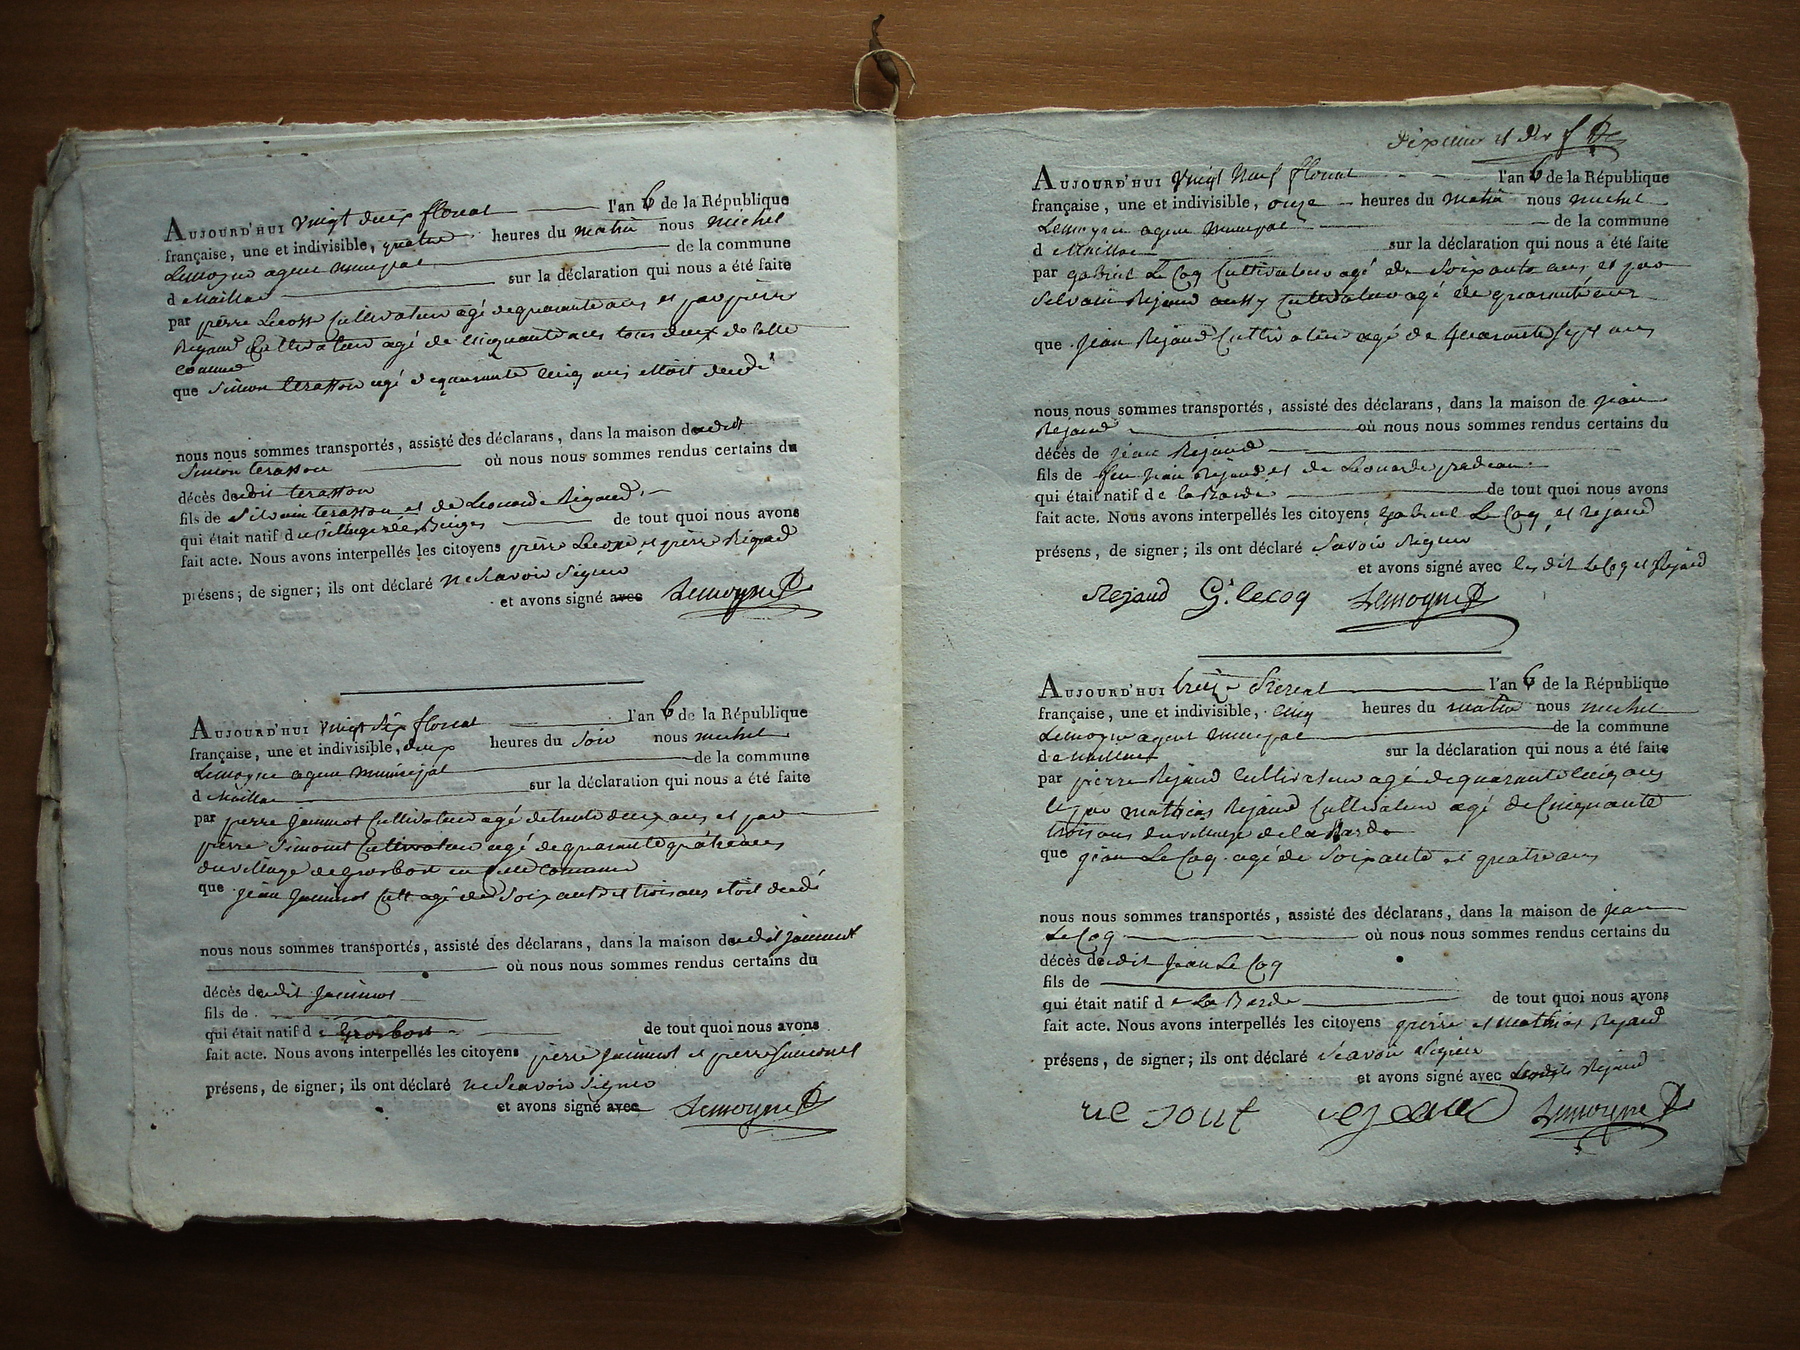 AUJOURD'HUI vingt deux floreal l'an 6 de la République
française, une et indivisible, quatre heures du matin nous michel
Lemoyne agent municipal de la commune
d Maillac sur la déclaration qui nous a été faite
par pierre Lecosse Cultivateur agé de quarante ans et par pierre
Rigaud Cultivateur agé de cinquante ans tous deux de cette
comune
que Simon terasson agé de quarante cinq ans etoit decedé
nous nous sommes transportés, assisté des déclarans, dans la maison dudit
Simon terasson où nous nous sommes rendus certains du
décès dudit terasson
fils de Silvain terasson et de Leonarde Rigaud
qui était natif du village des de tout quoi nous avons
fait acte. Nous avons interpellés les citoyens pierre Lecosse et pierre Rigaud
présens; de signer; ils ont déclaré ne Scavoir Signer
et avons signé avec Lemoyne
AUJOURD'HUI vingt Six floreal l'an 6 de la République
française, une et indivisible, deux heures du Soir nous michel
Lemoyne agent municipal de la commune
d Maillac sur la déclaration qui nous a été faite
par pierre Cultivateur agé de trente deux ans et par
pierre Simonet Cultivateur agé de quarante quatre ans
du village de grosbost en cette commune
que jean Cult. agé de Soixante et trois ans etoit decedé
nous nous sommes transportés, assisté des déclarans, dans la maison dudit
où nous nous sommes rendus certains du
décès dudit
fils de
qui était natif de Grosbost de tout quoi nous avons
fait acte. Nous avons interpellés les citoyens pierre et pierre Simonet
présens, de signer; ils ont déclaré ne Scavoir Signer
et avons signé avec Lemoyne
AUJOURD'HUI vingt Neuf floreal l'an 6 de la République
française, une et indivisible, onze heures du matin nous michel
Lemoyne agent municipal de la commune
d Maillac sur la déclaration qui nous a été faite
par gabriel Le Coq Cultivateur agé de Soixante ans et par
Silvain Rejaud aussy Cultivateur agé de quarante ans
que jean Rejaud Cultivateur agé de quarante Sept ans
nous nous sommes transportés, assisté des déclarans, dans la maison de jean
Rejaud où nous nous sommes rendus certains du
décès de jean Rejaud
fils de feu jean Rejaud et de Leonarde pradeau
qui était natif de la Barde de tout quoi nous avons
fait acte. Nous avons interpellés les citoyens gabriel Le Coq et Rejaud
présens, de signer; ils ont déclaré Savoir Signer
et avons signé avec les dit Le Coq et Rejaud
Rejaud G. lecoq Lemoyne
AUJOURD'HUI treize Prereal l'an 6 de la République
française, une et indivisible, cinq heures du matin nous michel
Lemoyne agent municipal de la commune
de Maillac sur la déclaration qui nous a été faite
par pierre Rejaud Cultivateur agé de quarante cinq ans
et par mathias Rejaud Cultivateur agé de Cinquante
trois ans du village de la Barde
que jean Le Coq agé de Soixante et quatre ans
nous nous sommes transportés, assisté des déclarans, dans la maison de jean
Le Coq où nous nous sommes rendus certains du
décès dudit jean Le Coq
fils de
qui était natif de La Barde de tout quoi nous avons
fait acte. Nous avons interpellés les citoyens pierre et mathias Rejaud
présens, de signer; ils ont déclaré Scavoir Signer
et avons signé avec Lesdits Rejaud
Lemoyne